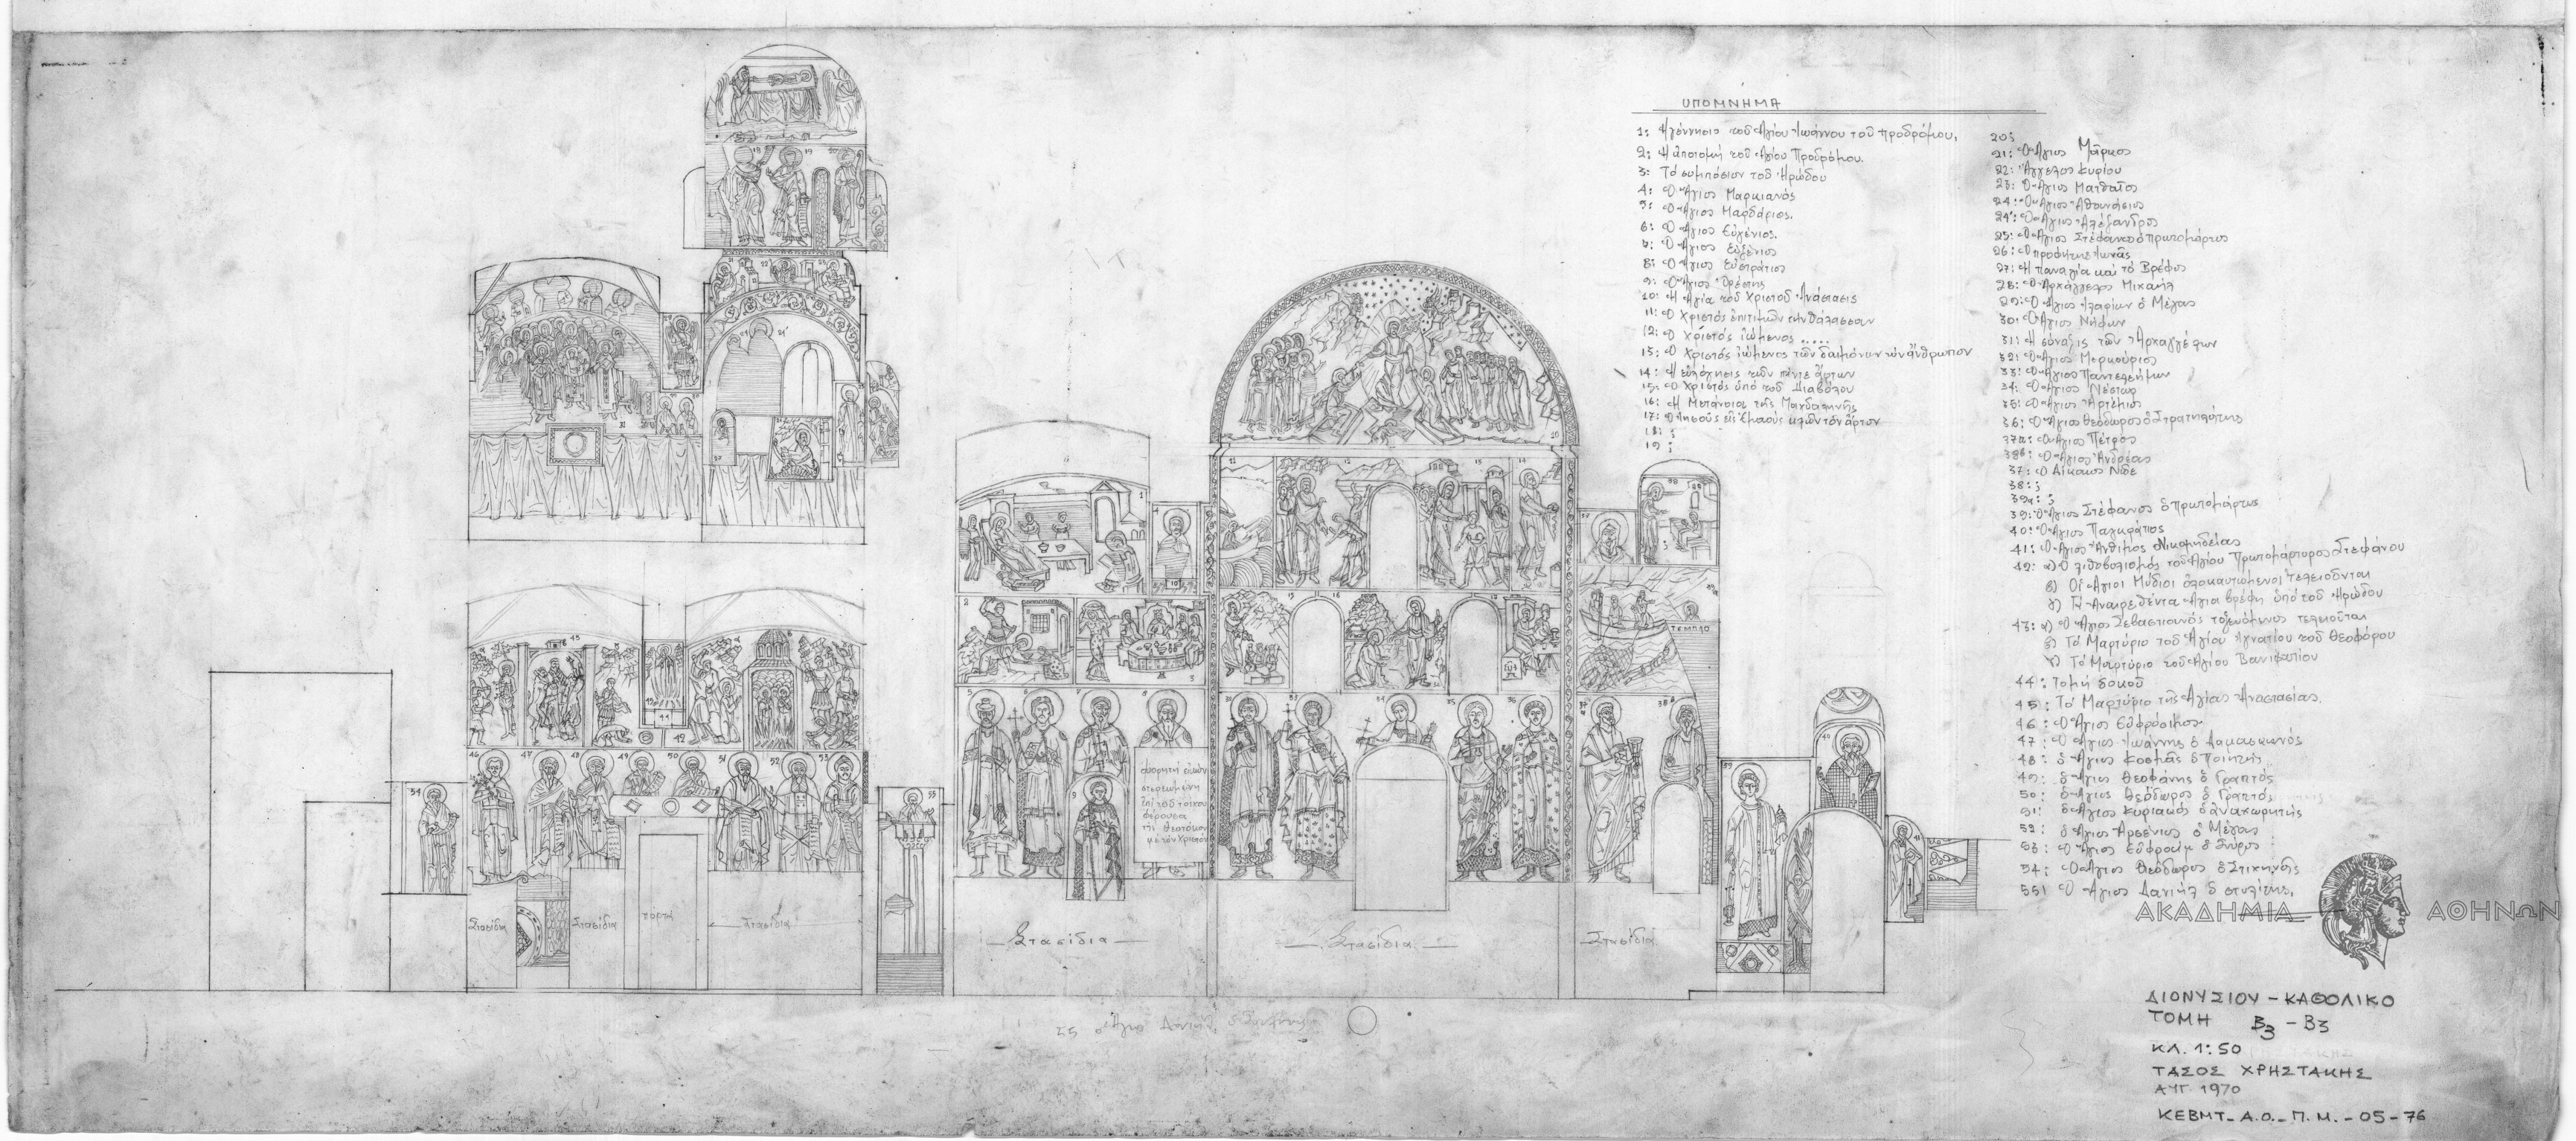 ΥΠΟΜΝΗΜΑ
1: Η γέννησις τοῦ Ἁγίου Ἰωάννου τοῦ προδρόμου.
2: Η ἀποτομή τοῦ Ἁγίου Προδρόμου.
3: Τό συμπόσιον τοῦ Ἡρώδου
4: Ὁ Ἅγιος Μαρκιανός
5: Ὁ Ἅγιος Μαρδάριος.
6: Ὁ Ἅγιος Εὐγένιος.
7: Ὁ Ἅγιος Εὐξένιος
8: Ὁ Ἅγιος Εὐστράτιος
9: Ὁ Ἅγιος Ὀρέστης
10: Η Ἁγία τοῦ Χριστοῦ Ἀνάστασις
11: Ὁ Χριστός ἐπιτιμῶν τήν θάλασσαν
12: Ὁ Χριστός ἰώμενος .....
13: Ὁ Χριστός ἰώμενος τῶν δαιμόνων τόν ἄνθρωπον
14: Η εὐλόγησις τῶν πέντε ἄρτων
15: Ὁ Χριστός ὑπό τοῦ Διαβόλου
16: Η Μετάνοια τῆς Μαγδαληνῆς
17: Ὁ Ἰησοῦς εἰς Ἐμαούς κλῶν τόν ἄρτον
18: ;
19: ;
20: ;
21: Ὁ Ἅγιος Μᾶρκος
22: Ἄγγελος Κυρίου
23: Ὁ Ἅγιος Ματθαῖος
24: Ὁ Ἅγιος Ἀθανάσιος
24': Ὁ Ἅγιος Ἀλέξανδρος
25: Ὁ Ἅγιος Στέφανος ὁ πρωτομάρτυς
26: Ὁ προφήτης Ἰωνᾶς
27: Η παναγία καί τό Βρέφος
28: Ὁ Ἀρχάγγελος Μιχαήλ
29: Ὁ Ἅγιος Ἱλαρίων ὁ Μέγας
30: Ὁ Ἅγιος Νήφων
31: Η σύναξις τῶν Ἀρχαγγέλων
32: Ὁ Ἅγιος Μερκούριος
33: Ὁ Ἅγιος Παντελεήμων
34: Ὁ Ἅγιος Νέστωρ
35: Ὁ Ἅγιος Ἀρτέμιος
36: Ὁ Ἅγιος Θεόδωρος ὁ Στρατηλάτης
37α: Ὁ Ἅγιος Πέτρος
38β: Ὁ Ἅγιος Ἀνδρέας
37: Ὁ Δίκαιος Νῶε
38: ;
39α: ;
39: Ὁ Ἅγιος Στέφανος ὁ πρωτομάρτυς
40: Ὁ Ἅγιος Παγκράτιος
41: Ὁ Ἅγιος Ἄνθιμος Νικομηδείας
42: α) Ὁ λιθοβολισμός τοῦ Ἁγίου Πρωτομάρτυρος Στεφάνου
β) Οἱ Ἅγιοι Μύριοι ὁλοκαυτώμενοι τελειοῦνται
γ) Τά Ἀναιρεθέντα Ἅγια βρέφη ὑπό τοῦ Ἡρώδου
43: α) Ὁ Ἅγιος Σεβαστιανός τοξευόμενος τελειοῦται
β) Τό Μαρτύριο τοῦ Ἁγίου Ἰγνατίου τοῦ Θεοφόρου
γ) Τό Μαρτύριο τοῦ Ἁγίου Βονιφατίου
44: Τομή δοκοῦ
45: Τό Μαρτύριο τῆς Ἁγίας Ἀναστασίας.
46: Ὁ Ἅγιος Εὐφρόσυνος
47: Ὁ Ἅγιος Ἰωάννης ὁ Δαμασκηνός
48: ὁ Ἅγιος Κοσμᾶς ὁ Ποιητής
49: ὁ Ἅγιος Θεοφάνης ὁ Γραπτός
50: ὁ Ἅγιος Θεόδωρος ὁ Γραπτός
51: ὁ Ἅγιος Κυριακός ὁ ἀναχωρητής
52: ὁ Ἅγιος Ἀρσένιος ὁ Μέγας
53: Ὁ Ἅγιος Εὐφραίμ ὁ Σύρος
54: Ὁ Ἅγιος Θεόδωρος ὁ Συκεώτης
55: Ὁ Ἅγιος Δανιήλ ὁ στυλίτης.
ΤΕΜΠΛΟ
φορητή εἰκών
στερεωμένη
ἐπί τοῦ τοίχου
φέρουσα
τή Θεοτόκο
μέ τόν Χριστόν
Στασίδια
Στασίδια
πόρτα
Στασίδια
Στασίδια
Στασίδια
Στασίδια
55 ὁ Ἅγιος Δανιήλ ὁ Στυλίτης
ΑΚΑΔΗΜΙΑ ΑΘΗΝΩΝ
ΔΙΟΝΥΣΙΟΥ - ΚΑΘΟΛΙΚΟ
ΤΟΜΗ Β3 - Β3
ΚΛ. 1:50
ΤΑΣΟΣ ΧΡΗΣΤΑΚΗΣ
ΑΥΓ 1970
ΚΕΒΜΤ - Α.Ο. - Π.Μ. - 05 - 76